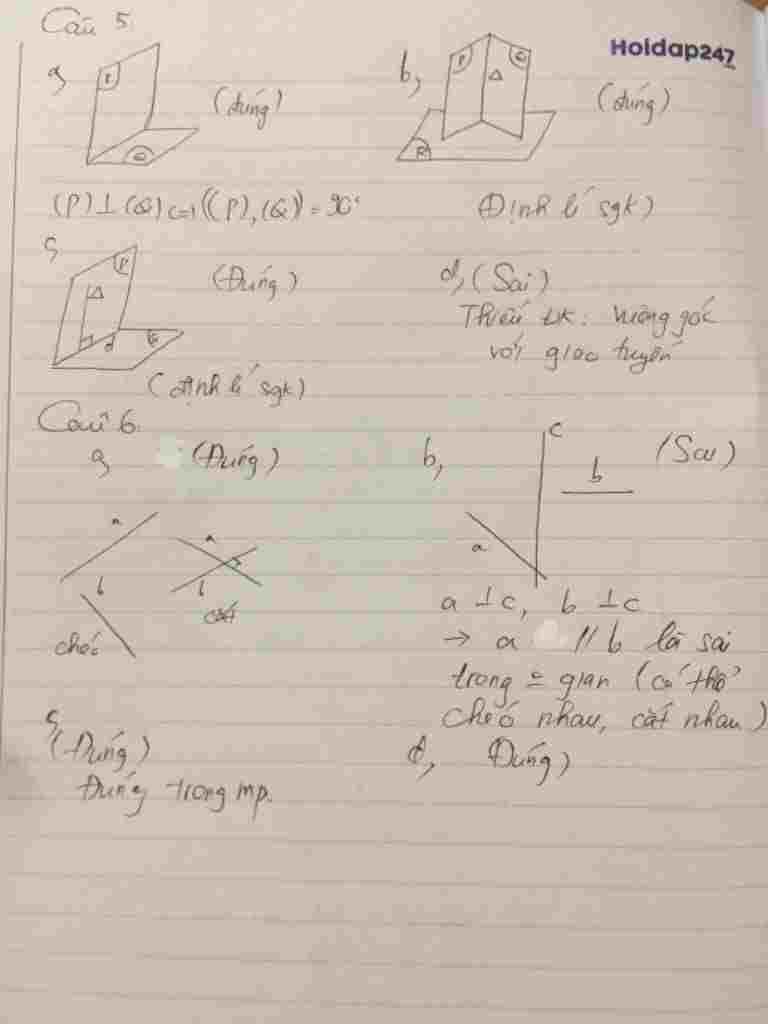 Câu 5.
Hoidap247
a,
P
Q
(đúng)
b,
P
Q
Δ
R
(đúng)
(P) ⊥ (Q) <=> ((P), (Q)) = 90°
(Định lí sgk)
c,
P
Δ
d
Q
(Đúng)
d, (Sai)
Thiếu ĐK: vuông góc
với giao tuyến
(định lí sgk)
Câu 6.
a, (Đúng)
b,
c
b
a
(Sai)
a
b
chéo
a
b
cắt
a ⊥ c, b ⊥ c
→ a // b là sai
trong gian (có thể
chéo nhau, cắt nhau)
c,
(Đúng)
Đúng trong mp.
d, Đúng)